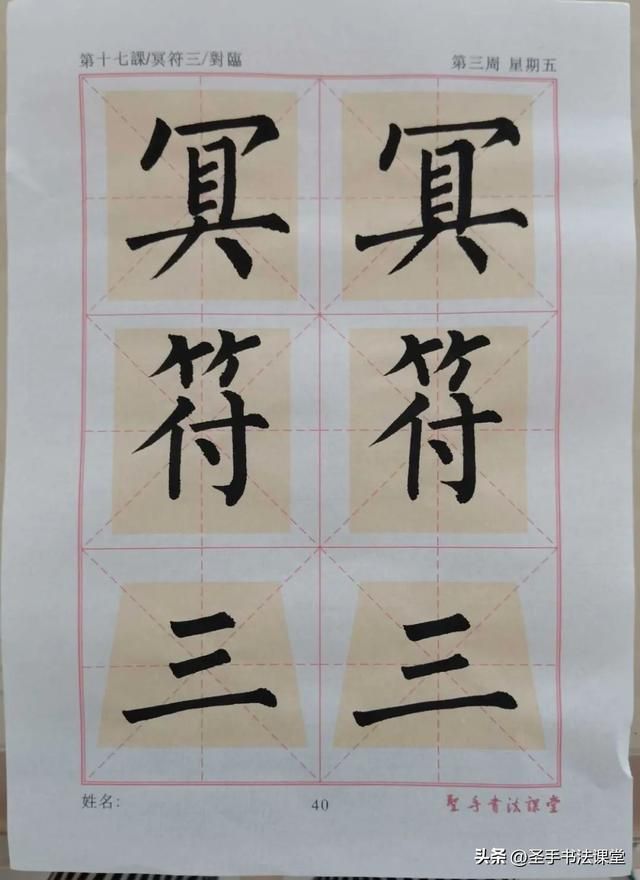 第十七課/冥符三/對臨
第三周 星期五
冥 冥
符 符
三 三
姓名:
40
聖手書法課堂
头条 @圣手书法课堂